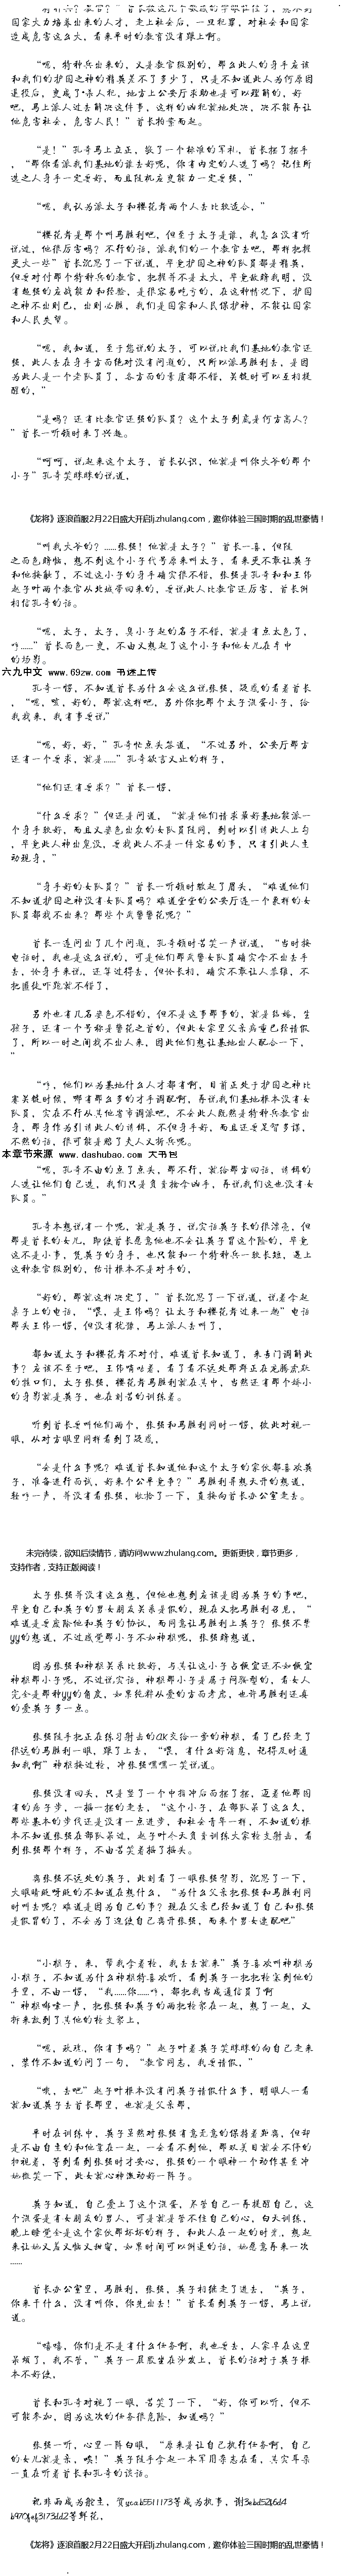 国家大力培养出来的人才，走上社会后，一旦犯罪，对社会和国家
造成危害这么大，看来平时的教育没有跟上啊。
“嗯，特种兵出来的，又是教官级别的，那么此人的身手应该
和我们的护国之神的精英差不了多少了，只是不知道此人为何原因
退役后，变成了*杀人犯，地方上公安厅求助也是可以理解的，好
吧，马上派人过去解决这件事，这样的凶犯就地处决，决不能再让
他危害社会，危害人民！”首长拍案而起。
“是！”孔奇马上立正，敬了一个标准的军礼，首长摆了摆手
，“那你看派我们基地的谁去好呢，你有内定的人选了吗？记住所
选之人身手一定要好，而且随机应变能力一定要强，”
“嗯，我认为派太子和樱花肯两个人去比较适合，”
“樱花肯是那个叫马胜利吧，但是于太子是谁，我怎么没有听
说过，他很厉害吗？不行的话，派我们的一个教官去吧，那样把握
更大一些”首长沉思了一下说道，毕竟护国之神的队员都是精英，
但要对付那个特种兵的教官，把握并不是太大，毕竟敌暗我明，没
有超强的应战能力和经验，是很容易吃亏的，在这种情况下，护国
之神不出则已，出则必胜，我们是国家和人民保护神，不能让国家
和人民失望。
“嗯，我知道，至于您说的太子，可以说比我们基地的教官还
强，此人去在身手方面绝对没有问题的，只所以派马胜利去，是因
为此人是一个老队员了，各方面的素质都不错，关键时可以互相提
醒的，”
“是吗？还有比教官还强的队员？这个太子到底是何方高人？
”首长一听顿时来了兴趣。
“呵呵，说起来这个太子，首长认识，他就是叫你大爷的那个
小子”孔奇笑眯眯的说道，
《龙将》逐浪首服2月22日盛大开启lj.zhulang.com，邀你体验三国时期的乱世豪情！
“叫我大爷的？……张强！他就是太子？”首长一喜，但随
之面色骤临，想不到这个小子代号原来叫太子，看来更不靠让英子
和他接触了，不过这个小子的身手确实很不错，张强是孔奇和和王伟
赵子叶两个教官从北城带回来的，要说此人比教官还厉害，首长倒
相信孔奇的话。
“嗯，太子，太子，臭小子起的名子不错，就是有点太色了，
哼……”首长面色一变，不由又想起了这个小子和他女儿在车中
的场影。
六九中文 www.69zw.com 书迷上传
孔奇一愣，不知道首长为什么会这么说张强，疑惑的看着首长
，“嗯，咳，好的，那就这样吧，另外你把那个太子派蛋小子，给
我找来，我有事要说”
“嗯，好，好，”孔奇忙点头答道，“不过另外，公安厅那方
还有一个要求，就是……”孔奇欲言又止的样子，
“他们还有要求？”首长一愣，
“什么要求？”但还是问道，“就是他们请求最好基地能派一
个身手较好，而且又姿色出众的女队员随同，到时以引诱此人上勾
，毕竟此人神出鬼没，要找此人不是一件容易的事，只有引此人主
动现身，”
“身手好的女队员？”首长一听顿时皱起了眉头，“难道他们
不知道护国之神没有女队员吗？难道堂堂的公安厅连一个象样的女
队员都找不出来？那些个武警警花呢？”
首长一连问出了几个问题，孔奇顿时苦笑一声说道，“当时接
电话时，我也是这么说的，可是他们那武警女队员确实舍不出去手
去，论身手来说，还算过得去，但论长相，确实不靠让人恭维，不
把匪徒吓跑就不错了，
另外也有几名姿色不错的，但不是这事那事的，就是结婚，生
孩子，还有一个号称是警花之首的，但此女家里父亲病重已经请假
了，所以一时之间找不出人来，因此他们想让基地出人配合一下，
”
“哼，他们以为基地什么人才都有啊，目前正处于护国之神比
赛关键时候，哪有那么多的才手调配啊，再说我们基地根本没有女
队员，实在不行从其他省市调派吧，不会此人既然是特种兵教官出
身，那身作为引诱此人的诱饵，不但身手好，而且还要足智多谋，
不然的话，很可能是赔了夫人又折兵呢。
本章节来源 www.dashubao.com 大书包
“嗯，孔奇不由的点了点头，那不行，就给那方回话，诱饵的
人选让他们自己选，我们只是负责擒拿凶手，再说我们这也没有女
队员。”
孔奇本想说有一个呢，就是英子，说实话英子长的很漂亮，但
那是首长的女儿，即使首长愿意他也不会让英子冒这个险的，毕竟
这不是小事，凭英子的身手，也只能和一个特种兵一较长短，遇上
这种教官级别的，估计根本不是对手的，
“好的，那就这样决定了，”首长沉思了一下说道，说着拿起
桌子上的电话，“喂，是王伟吗？让太子和樱花肯过来一趟”电话
那头王伟一愣，但没有犹豫，马上派人去叫了，
都知道太子和樱花肯不对付，难道首长知道了，来专门调解此
事？应该不至于吧，王伟嘀咕着，看了看不远处那群正在龙腾虎跃
的推口们，太子张强，樱花肯马胜利就在其中，当然还有那个娇小
的身影就是英子，也在刻苦的训练着。
听到首长要叫他们两个，张强和马胜利同时一愣，彼此对视一
眼，从对方眼里同样看到了疑惑，
“会是什么事呢？难道首长知道他和这个太子的家伙都喜欢英
子，准备进行面试，好来个公平竞争？”马胜利异想天开的想道，
轻哼一声，并没有看张强，收拾了一下，直接向首长办公室走去。
未完待续，欲知后续情节，请访问www.zhulang.com。更新更快，章节更多，
支持作者，支持正版阅读！
太子张强并没有这么想，但他也想到应该是因为英子的事吧，
毕竟自己和英子的男女朋友关系是假的，现在又把马胜利召见，“
难道是要废除他和英子的协议，而同意让马胜利上英子？张强不禁
yy的想道，不过感觉那小子不如神棍呢，张强暗想道，
因为张强和神棍关系比较好，与其让这小子占便宜还不如便宜
神棍那小子呢，不过说实话，神棍那小子是属于闷骚型的，看女人
完全是那种yy的角度，如果纯粹从爱的方面考虑，也许马胜利还真
的爱英子多一点。
张强随手把正在练习射击的CK交给一旁的神棍，看了已经走了
很远的马胜利一眼，跟了上去，“喂，有什么好消息，记得及时通
知我啊”神棍接过枪，冲张强嘿嘿一笑说道。
张强没有回头，只是竖了一个中指冲后面摆了摆，迈着他那固
有的痞子步，一摇一摆的走去，“这个小子，在部队呆了这么久，
那些基本的步伐还是没有一点进步，和社会青年一样，不知道的根
本不知道张强在部队呆过，赵子叶今天负责训练大家枪支射击，看
到张强那个样子，不由苦笑着摇了摇头。
离张强不远处的英子，此刻看了一眼张强背影，沉思了一下，
大眼睛眨呀眨的不知道在想什么，“为什么父亲把张强和马胜利同
时叫去呢？难道是因为自己的事？现在父亲已经知道了自己和张强
是假冒的了，不会为了逼使自己离开张强，而来个男女速配吧”
“小棍子，来，帮我拿着枪，我去去就来”英子喜欢叫神棍为
小棍子，不知道为什么神棍特喜欢听，看到英子一把把枪塞到他的
手里，不由一愣，“我……你……哼，都把我当成通信员了啊
”神棍嘟哝一声，把张强和英子的两把枪架在一起，想了一起，又
折来放到了其他的枪支架上，
“嗯，欧珠，你有事吗？”赵子叶看英子笑眯眯的向自己走来
，装作不知道的问了一句，“教官同志，我要请假，”
“哦，去吧”赵子叶根本没有问英子请假什么事，明眼人一看
就知道英子去首长那里，也就是父亲那，
平时在训练中，英子虽然对张强有意无意的保持着距离，但却
是不由自主的和他拿在一起，一会看不到他，那双美目就会不停的
扫视着，等到看到张强时才安心，张强的一个眼神一个动作甚至冲
她微笑一下，此女就心神激动好一阵子。
英子知道，自己爱上了这个派蛋，尽管自己一再提醒自己，这
个派蛋是有女朋友的男人，可是就是管不住自己的心，白天训练，
晚上睡觉全是这个家伙那坏坏的样子，和此人在一起的时光，想起
来让她又羞又恼又甜蜜，如果时间可以倒退的话，她愿意再来一次
……
首长办公室里，马胜利，张强，英子相继走了进去，“英子，
你来干什么，没有叫你，你先出去！”首长看到英子一愣，马上说
道。
“嘻嘻，你们是不是有什么任务啊，我也要去，人家早在这里
呆烦了，我不管，”英子一屁股坐在沙发上，首长的话对于英子根
本不好使，
首长和孔奇对视了一眼，苦笑了一下，“好，你可以听，但不
可能参加，因为这次的任务很危险，知道吗？”
张强一听，心里一阵白眼，“原来是让自己执行任务啊，自己
的女儿就是亲，唉！”英子随手拿起一本军用杂志在看，其实耳朵
一直在听着首长和孔奇的谈话。
《龙将》逐浪首服2月22日盛大开启lj.zhulang.com，邀你体验三国时期的乱世豪情！